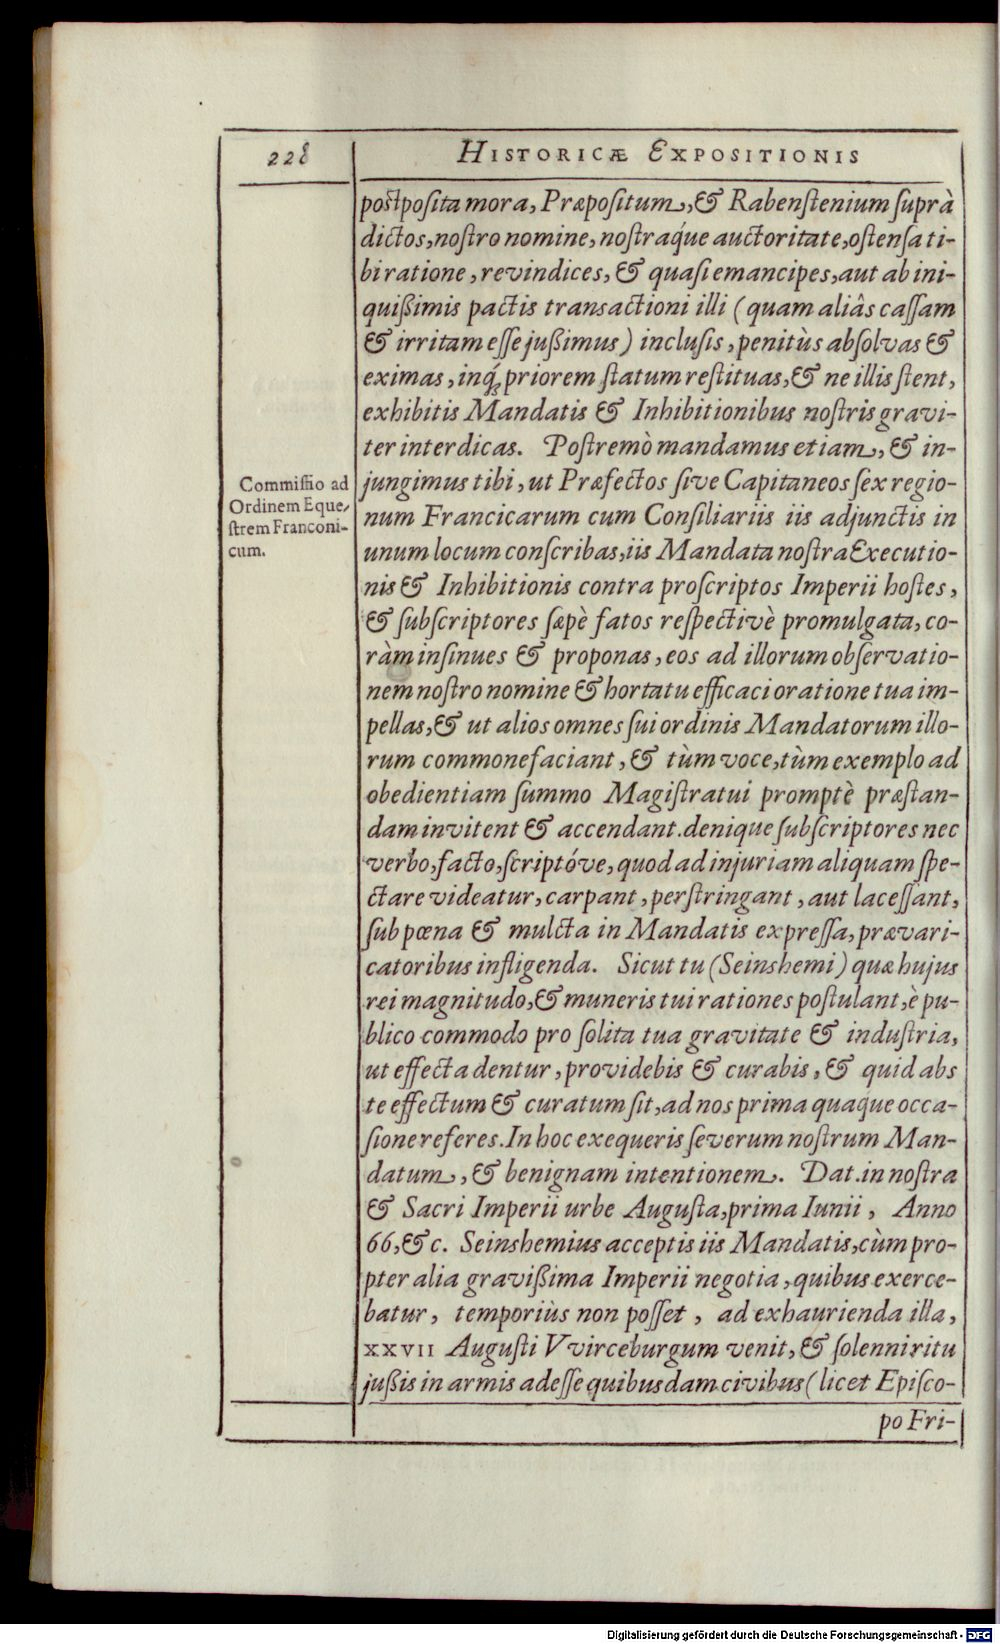 228
HISTORICÆ EXPOSITIONIS
postposita mora, Præpositum, & Rabenstenium suprà
dictos, nostro nomine, nostraq́ue auctoritate, ostensa ti-
bi ratione, revindices, & quasi emancipes, aut ab ini-
quißimis pactis transactioni illi (quam aliâs cassam
& irritam esse jußimus) inclusis, penitùs absolvas &
eximas, inq́; priorem statum restituas, & ne illis stent,
exhibitis Mandatis & Inhibitionibus nostris gravi-
ter interdicas. Postremò mandamus etiam, & in-
jungimus tibi, ut Præfectos sive Capitaneos sex regio-
num Francicarum cum Consiliariis iis adjunctis in
unum locum conscribas, iis Mandata nostra Executio-
nis & Inhibitionis contra proscriptos Imperii hostes,
& subscriptores sæpè fatos respectivè promulgata, co-
ràm insinues & proponas, eos ad illorum observatio-
nem nostro nomine & hortatu efficaci oratione tua im-
pellas, & ut alios omnes sui ordinis Mandatorum illo-
rum commonefaciant, & tùm voce, tùm exemplo ad
obedientiam summo Magistratui promptè præstan-
dam invitent & accendant. denique subscriptores nec
verbo, facto, scriptóve, quod ad injuriam aliquam spe-
ctare videatur, carpant, perstringant, aut lacessant,
sub pœna & mulcta in Mandatis expressa, prævari-
catoribus infligenda. Sicut tu (Seinshemi) quæ hujus
rei magnitudo, & muneris tui rationes postulant, è pu-
blico commodo pro solita tua gravitate & industria,
ut effecta dentur, providebis & curabis, & quid abs
te effectum & curatum sit, ad nos prima quaq́ue occa-
sione referes. In hoc exequeris severum nostrum Man-
datum, & benignam intentionem. Dat. in nostra
& Sacri Imperii urbe Augusta, prima Iunii, Anno
66, &c. Seinshemius acceptis iis Mandatis, cùm pro-
pter alia gravißima Imperii negotia, quibus exerce-
batur, temporiùs non posset, ad exhaurienda illa,
XXVII Augusti Vvirceburgum venit, & solenni ritu
jußis in armis adesse quibusdam civibus (licet Episco-
po Fri-
Commissio ad
Ordinem Eque-
strem Franconi-
cum.
Digitalisierung gefördert durch die Deutsche Forschungsgemeinschaft - DFG